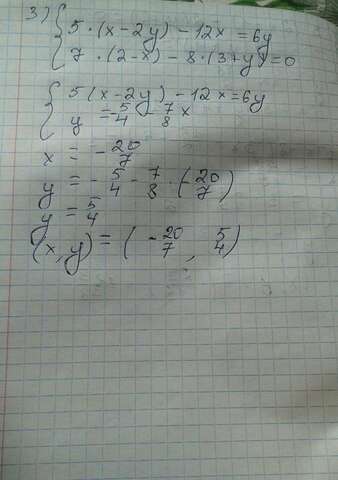 3) { 5·(x-2y)-12x=6y
7·(2-x)-8·(3+y)=0
{ 5(x-2y)-12x=6y
y = -5/4 - 7/8 x
x = -20/7
y = -5/4 - 7/8 · (-20/7)
y = 5/4
(x,y) = ( -20/7 , 5/4 )